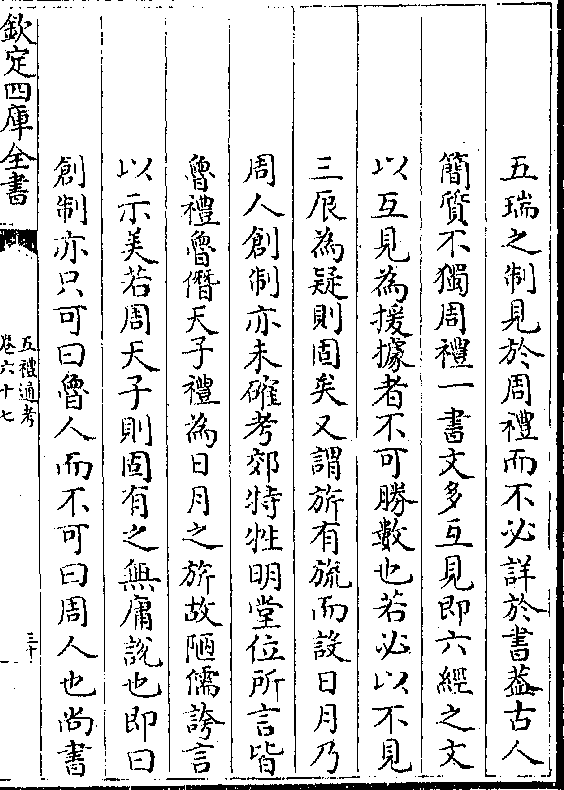 五瑞之制見於周禮而不必詳於書葢古人
簡質不獨周禮一書文多互見即六經之文
以互見為援據者不可勝數也若必以不見
三辰為疑則固矣又謂旂有旒而設日月乃
周人創制亦未確考郊特牲明堂位所言皆
魯禮魯僭天子禮為日月之旂故陋儒誇言
以示美若周天子則固有之無庸說也即曰
創制亦只可曰魯人而不可曰周人也尚書
欽定四庫全書
五禮通考
卷六十七
三十